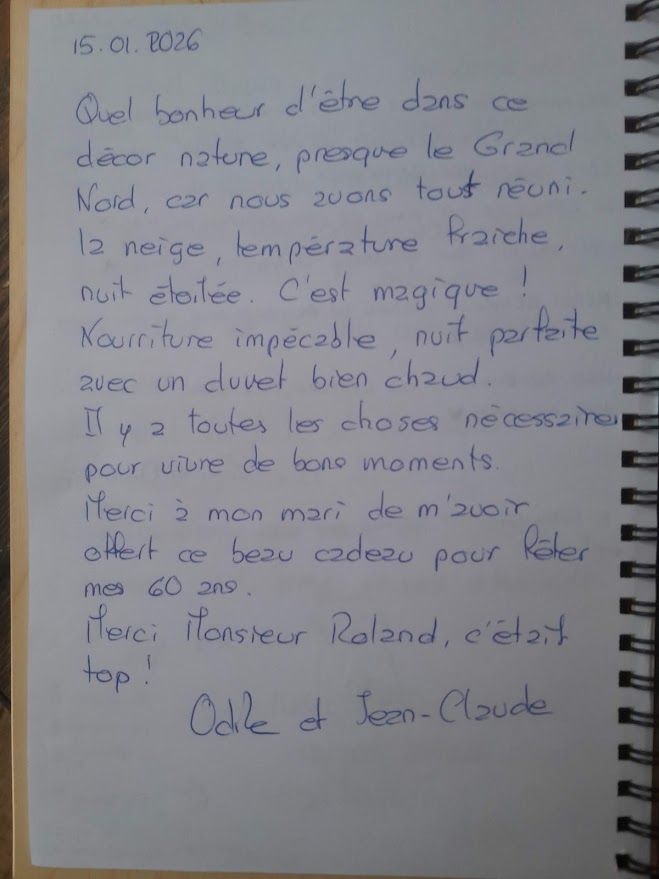 15.01.2026
Quel bonheur d'être dans ce
décor nature, presque le Grand
Nord, car nous avons tout réuni.
la neige, température fraiche,
nuit étoilée. C'est magique !
Nourriture impécable, nuit parfaite
avec un duvet bien chaud.
Il y a toutes les choses nécessaires
pour vivre de bons moments.
Merci à mon mari de m'avoir
offert ce beau cadeau pour fêter
mes 60 ans.
Merci Monsieur Roland, c'était
top !
Odile et Jean-Claude